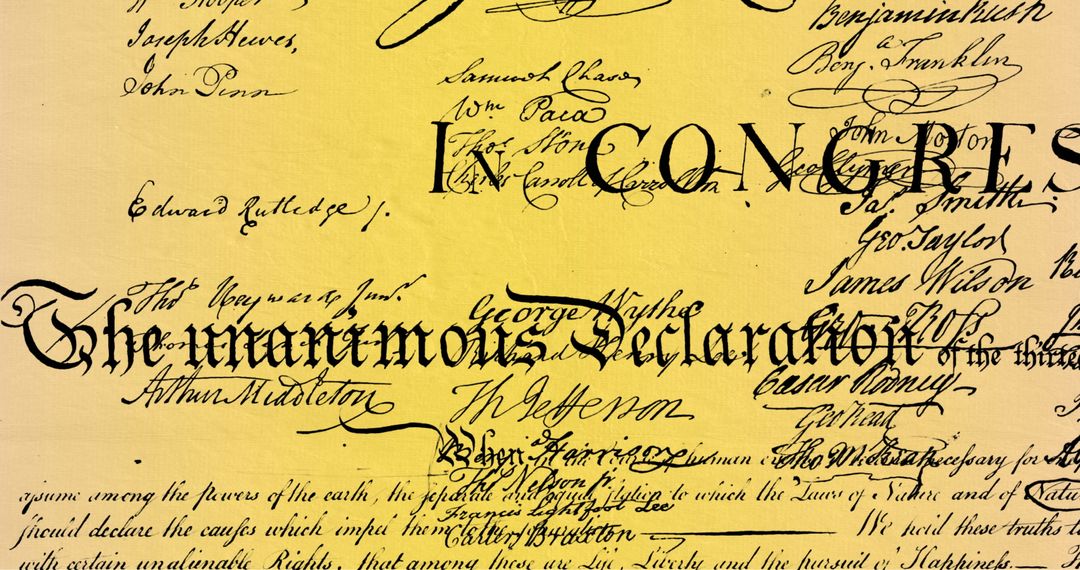 Joseph Hewes,
John Penn
Edward Rutledge /.
Thos Heyward Junr.
Arthur Middleton
Samuel Chase
Wm. Paca
Thos. Stone
Charles Carroll of Carrollton
George Wythe
Richard Henry Lee
Th Jefferson
Benja Harrison
Thos Nelson jr.
Francis Lightfoot Lee
Carter Braxton
Benjamin Rush
Benj. Franklin
John Morton
Geo Clymer
Jas. Smith.
Geo. Taylor
James Wilson
Geo. Ross
Caesar Rodney
Geo Read
Tho M:Kean
IN CONGRES
The unanimous Declaration of the thirte
When in the human necessary for
assume among the powers of the earth, the separate and equal station to which the Laws of Nature and of Natu
should declare the causes which impel them to the We hold these truths t
with certain unalienable Rights, that among these are Life, Liberty and the pursuit of Happiness.—